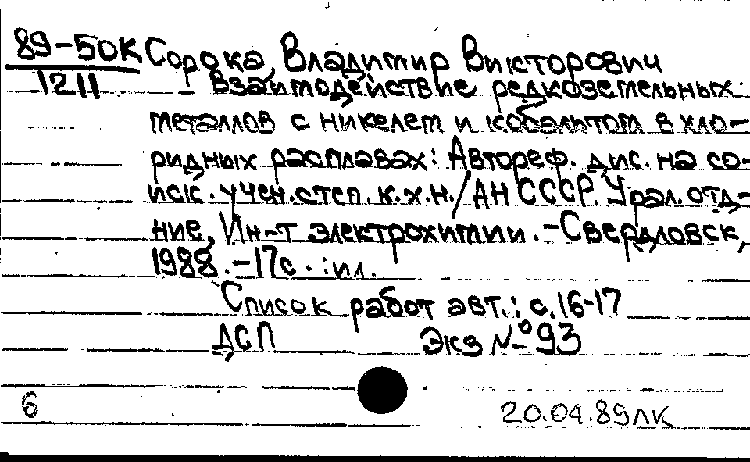 89-50К Сорока, Владимир Викторович
1211 Взаимодействие редкоземельных
металлов с никелем и кобальтом в хло-
ридных расплавах: Автореф. дис. на со-
иск. учен. степ. к.х.н. / АН СССР. Урал. отд-
ние, Ин-т электрохимии. - Свердловск,
1988. - 17с. : ил.
Список работ авт.: с. 16-17
ДСП Экз № 93
6 20.04.89ЛК